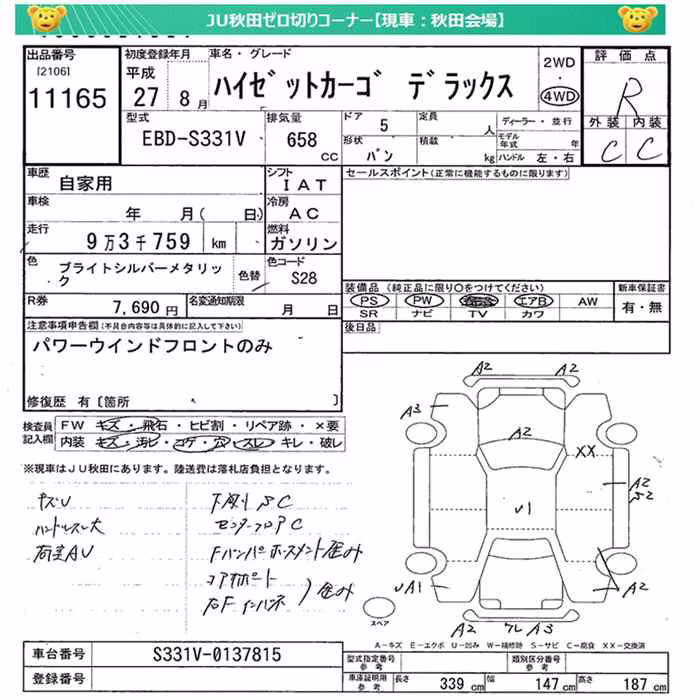 JU秋田ゼロ切りコーナー【現車：秋田会場】
出品番号
[2106]
11165
初度登録年月
平成
27 8月
車名・グレード
ハイゼットカーゴ デラックス
2WD
・
4WD
評価点
R
外装 内装
C C
型式
EBD-S331V
排気量
658
CC
ドア 5
定員 人
ディーラー・並行
モデル年式 年
形状 バン
積載 kg
ハンドル 左・右
車歴 自家用
シフト IAT
セールスポイント(正常に機能するものに限ります)
車検 年 月( 日)
冷房 AC
走行 9万3千759 km
燃料 ガソリン
色 ブライトシルバーメタリック
色替
色コード S28
装備品 (純正品に限り○をつけてください)
新車保証書
PS PW エアB AW
SR ナビ TV カワ
有・無
R券 7,690円
名変通知期限 月 日
後日品
注意事項申告欄(不具合内容等は具体的に記入して下さい)
パワーウインドフロントのみ
修復歴 有〔箇所 〕
検査員記入欄
FW キズ・飛石・ヒビ割・リペア跡・×要
内装 キズ・汚レ・コゲ・穴・スレ・キレ・破レ
※現車はJU秋田にあります。陸送費は落札店負担となります。
キズU
ハンドルスレ大
下廻りSC
センターフロアC
Fバンパーホースメント歪み
コアサポート
右Fインパネ
歪み
A2
A2
A3
A2
XX
A2
S2
U1
UA1
A2
A2
ワレ
A3
スペア
A－キズ E－エクボ U－凹み W－補修跡 S－サビ C－腐食 XX－交換済
車台番号 S331V-0137815
登録番号
型式指定番号 参考
類別区分番号 参考
車庫証明用 参考
長さ 339 cm
幅 147 cm
高さ 187 cm